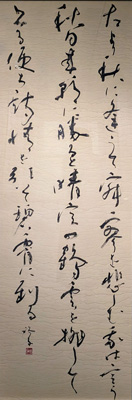 古より秋に逢うて寂寥を悲しむ我は言う
秋日春朝に勝ると晴空一鶴雲を排して
上る便ち詩情を引いて碧霄に到る